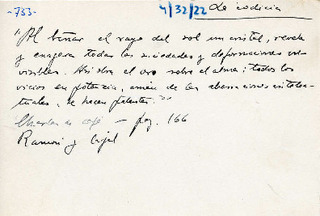 -753-
4/32/22
La codicia
"Al herir el rayo del sol un cristal, revela
y exagera todas las suciedades y deformaciones in-
visibles. Así obra el oro sobre el alma: todos los
vicios en potencia, amén de las aberraciones intelec-
tuales, se hacen patentes."
Charlas de café - pag. 166
Ramón y Cajal